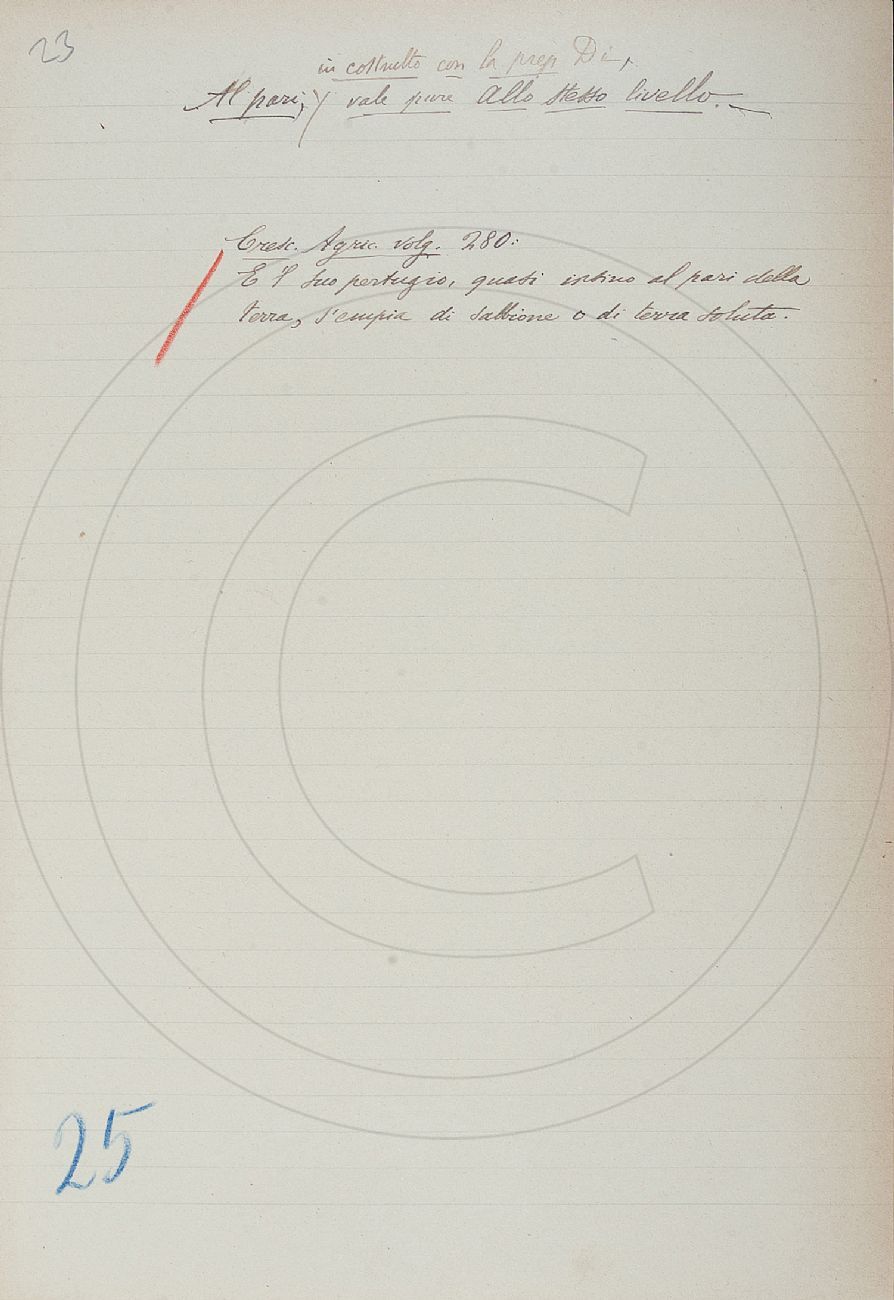 23
in costrutto con la prep. Di,
Al pari, vale pure Allo stesso livello. —
Cresc. Agric. volg. 280:
E 'l suo pertugio, quasi insino al pari della
terra, s'empia di sabbione o di terra soluta.
25